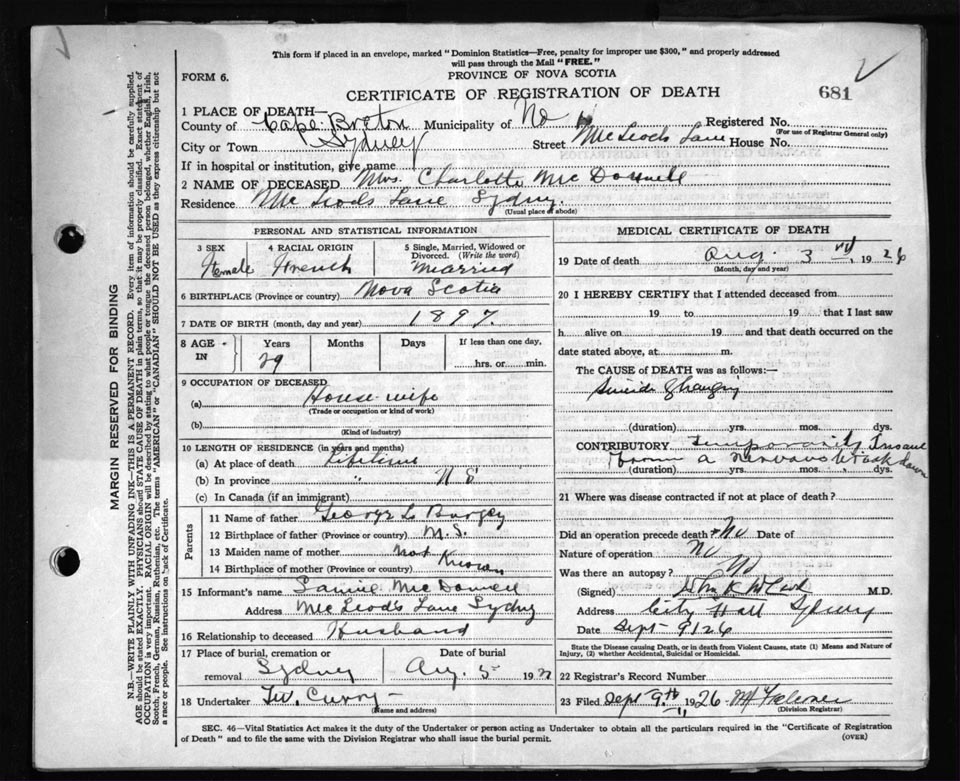 This form if placed in an envelope, marked "Dominion Statistics—Free, penalty for improper use $300," and properly addressed
will pass through the Mail "FREE."
FORM 6.
PROVINCE OF NOVA SCOTIA
CERTIFICATE OF REGISTRATION OF DEATH
681
1 PLACE OF DEATH—
County of Cape Breton Municipality of No Registered No.
(For use of Registrar General only)
City or Town Sydney Street McLeods Lane House No.
If in hospital or institution, give name
2 NAME OF DECEASED Mrs. Charlotte McDonnell
Residence McLeods Lane Sydney.
(Usual place of abode)
PERSONAL AND STATISTICAL INFORMATION
3 SEX Female
4 RACIAL ORIGIN French
5 Single, Married, Widowed or
Divorced. (Write the word)
Married
6 BIRTHPLACE (Province or country) Nova Scotia
7 DATE OF BIRTH (month, day and year) 1897.
8 AGE IN Years Months Days If less than one day,
29 hrs. or min.
9 OCCUPATION OF DECEASED
(a) House wife
(Trade or occupation or kind of work)
(b)
(Kind of industry)
10 LENGTH OF RESIDENCE (in years and months)
(a) At place of death Lifetime
(b) In province " N S
(c) In Canada (if an immigrant)
Parents
11 Name of father George L
12 Birthplace of father (Province or country) N.S.
13 Maiden name of mother Not
14 Birthplace of mother (Province or country) Known
15 Informant's name
Address McLeods Lane Sydney
16 Relationship to deceased Husband
17 Place of burial, cremation or Date of burial
removal Sydney Aug 5 192
18 Undertaker Curry
(Name and address)
MEDICAL CERTIFICATE OF DEATH
19 Date of death Aug. 3 rd 1926
(Month, day and year)
20 I HEREBY CERTIFY that I attended deceased from
19 to 19 that I last saw
h alive on 19 and that death occurred on the
date stated above, at m.
The CAUSE of DEATH was as follows:—
Suicide hanging
(duration) yrs. mos. dys.
CONTRIBUTORY temporarily Insane
from a nervous break down
(duration) yrs. mos. dys.
21 Where was disease contracted if not at place of death?
Did an operation precede death? No Date of
Nature of operation No
Was there an autopsy? No
(Signed) M.D.
Address City Hall Sydney
Date Sept 9 1926
State the Disease causing Death, or in death from Violent Causes, state (1) Means and Nature of
Injury, (2) whether Accidental, Suicidal or Homicidal.
22 Registrar's Record Number
23 Filed Sept 9th 1926
(Division Registrar)
SEC. 46—Vital Statistics Act makes it the duty of the Undertaker or person acting as Undertaker to obtain all the particulars required in the "Certificate of Registration
of Death" and to file the same with the Division Registrar who shall issue the burial permit.
(OVER)
MARGIN RESERVED FOR BINDING
N.B.—WRITE PLAINLY WITH UNFADING INK—THIS IS A PERMANENT RECORD. Every item of information should be carefully supplied.
AGE should be stated EXACTLY. PHYSICIANS should STATE CAUSE OF DEATH in plain terms, so that it may be properly classified. Exact statement of
OCCUPATION is very important. RACIAL ORIGIN will be described by stating to what people or tongue the deceased person belonged, whether English, Irish,
Scotch, French, German, Russian, Ruthenian, etc. The terms "AMERICAN" or "CANADIAN" SHOULD NOT BE USED as they express citizenship but not
a race or people. See instructions on back of Certificate.